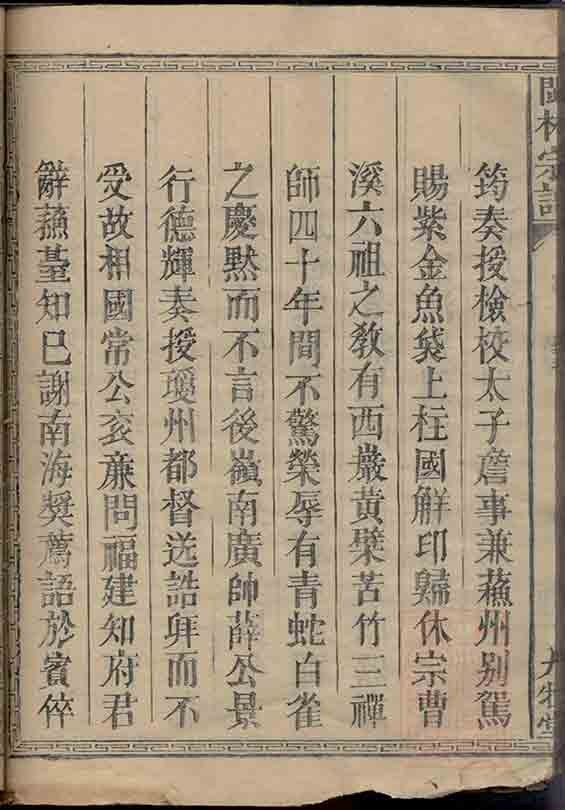 閩林宗譜
九牧堂
筠奏授檢校太子詹事兼蘓州别駕
賜紫金魚袋上柱國觧印歸休宗曹
溪六祖之教有西巖黄檗苦竹三禪
師四十年間不驚榮辱有青蛇白雀
之慶黙而不言後嶺南廣帥薛公景
行德輝奏授瓊州都督送誥牀而不
受故相國常公衮亷問福建知府君
辭蘓䑓知已謝南海奬薦語於賓倅